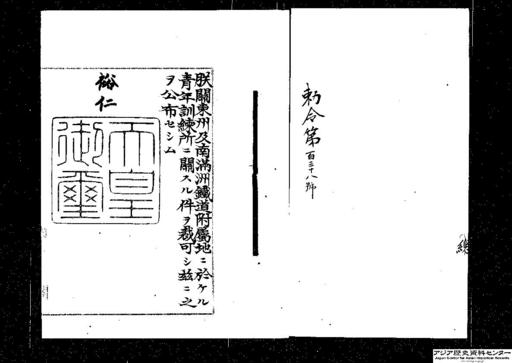 勅令第百三十八號
朕關東州及南滿洲鐵道附屬地ニ於ケル
青年訓練所ニ關スル件ヲ裁可シ茲ニ之
ヲ公布セシム
裕仁
天皇
御璽
アジア歴史資料センター
Japan Center for Asian Historical Records